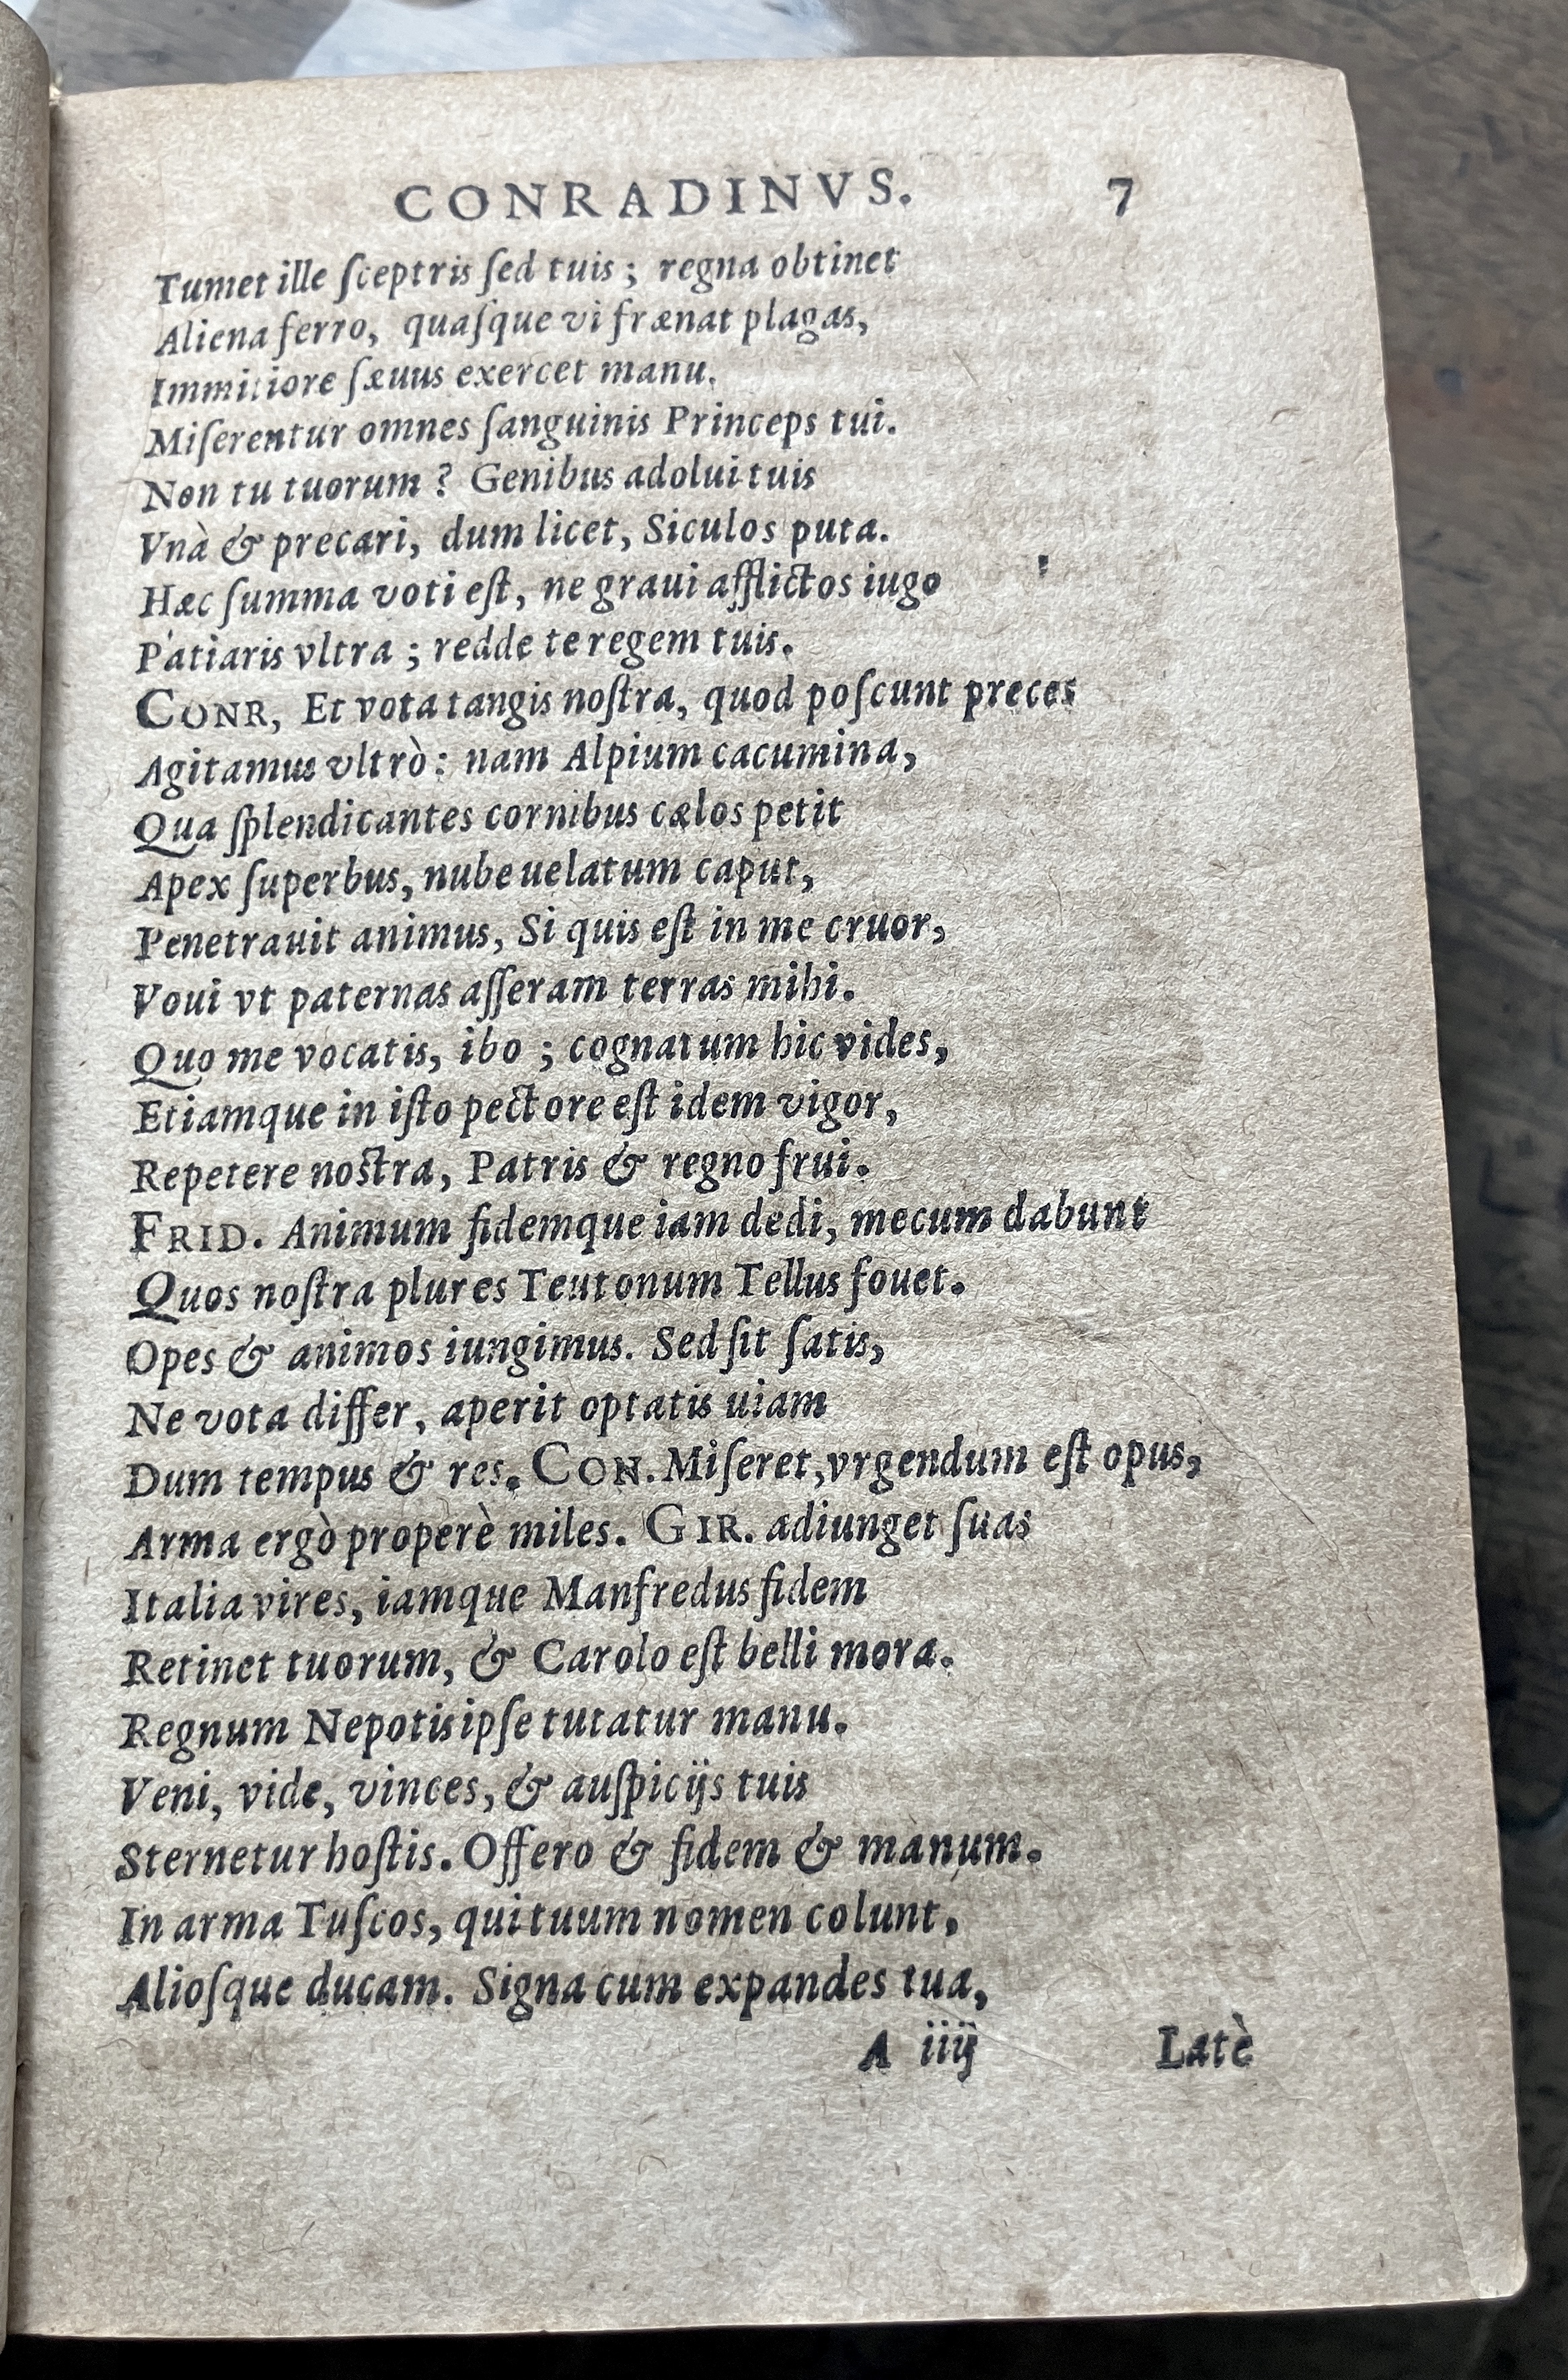 CONRADINVS. 7
Tumet ille ſceptris ſed tuis ; regna obtinet
Aliena ferro, quaſque vi frænat plagas,
Immitiore ſæuus exercet manu.
Miſerentur omnes ſanguinis Princeps tui.
Non tu tuorum ? Genibus adolui tuis
Vnà & precari, dum licet, Siculos puta.
Hæc ſumma voti eſt, ne graui afflictos iugo
Patiaris vltra ; redde te regem tuis.
CONR, Et vota tangis noſtra, quod poſcunt preces
Agitamus vltrò : nam Alpium cacumina,
Qua ſplendicantes cornibus cælos petit
Apex ſuperbus, nube uelatum caput,
Penetrauit animus, Si quis eſt in me cruor,
Voui vt paternas aſſeram terras mihi.
Quo me vocatis, ibo ; cognatum hic vides,
Etiamque in iſto pectore eſt idem vigor,
Repetere noſtra, Patris & regno frui.
FRID. Animum fidemque iam dedi, mecum dabunt
Quos noſtra plures Teutonum Tellus fouet.
Opes & animos iungimus. Sed ſit ſatis,
Ne vota differ, aperit optatis uiam
Dum tempus & res. CON. Miſeret, vrgendum eſt opus,
Arma ergò properè miles. GIR. adiunget ſuas
Italia vires, iamque Manfredus fidem
Retinet tuorum, & Carolo eſt belli mora.
Regnum Nepotis ipſe tutatur manu.
Veni, vide, vinces, & auſpicijs tuis
Sternetur hoſtis. Offero & fidem & manum.
In arma Tuſcos, qui tuum nomen colunt,
Alioſque ducam. Signa cum expandes tua,
A iiij Latè